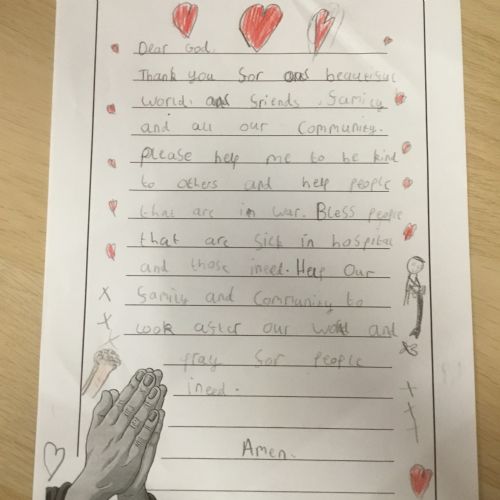 Dear God.
Thank you for our beautiful
world. our friends. family
and all our community.
please help me to be kind
to others and help people
that are in war. Bless people
that are sick in hospital
and those ineed. Help our
family and community to
look after our world and
pray for people
ineed.
Amen.